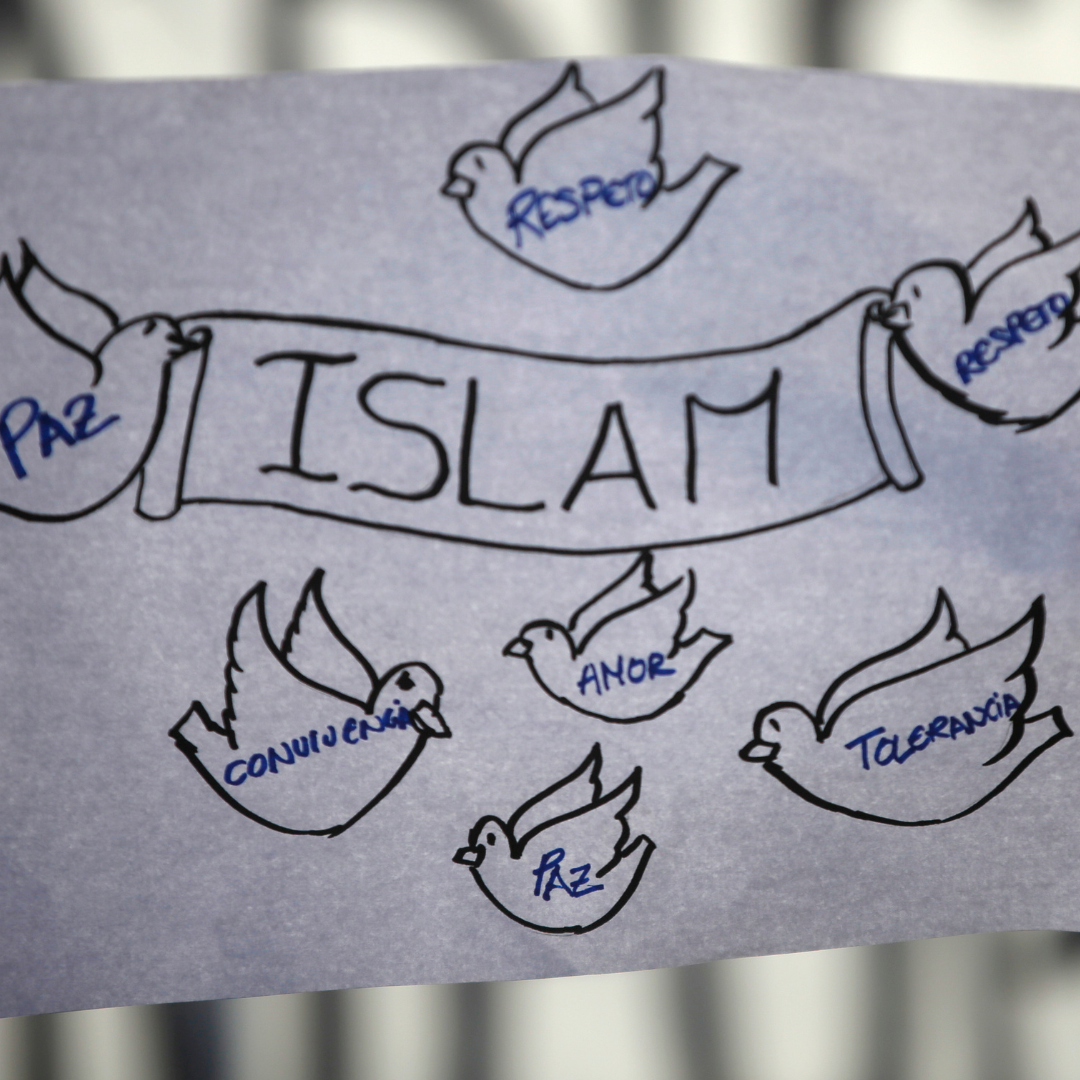 RESPETO
RESPETO
PAZ
ISLAM
AMOR
CONVIVENCIA
TOLERANCIA
PAZ